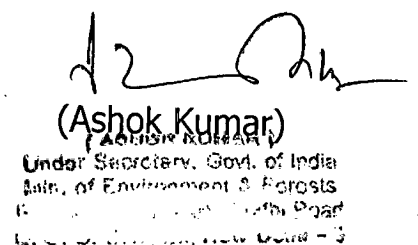 (Ashok Kumar)
( ASHOK KUMAR )
Under Secretary, Govt. of India
Min. of Environment & Forests
Road
New Delhi - 3